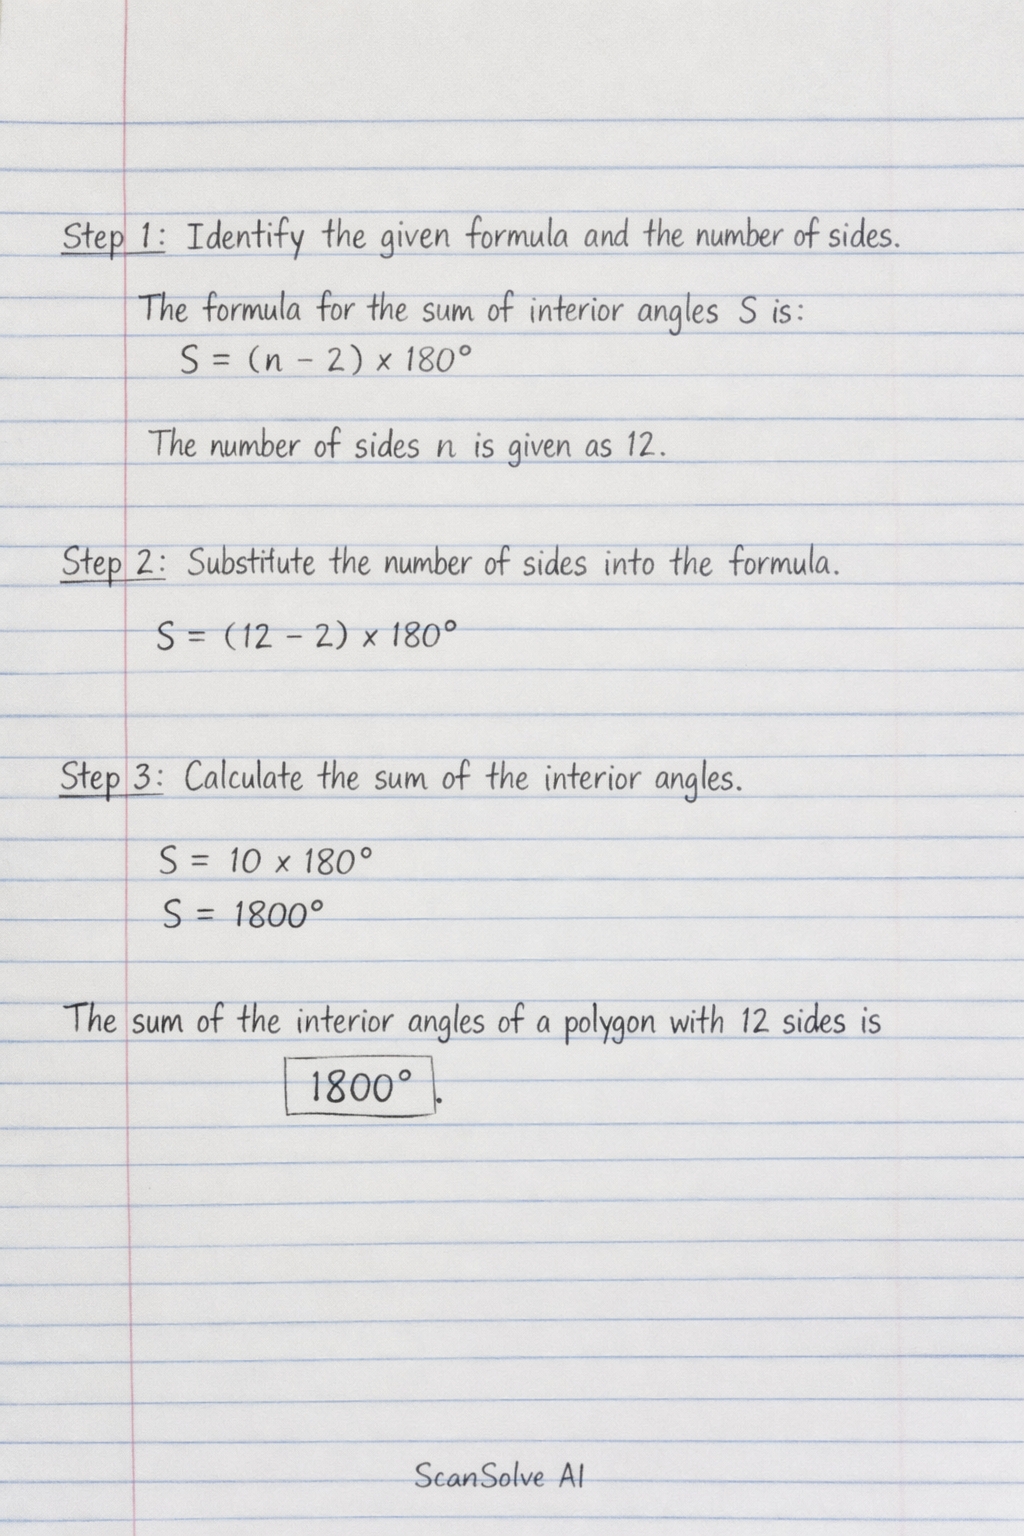 Step 1: Identify the given formula and the number of sides.
The formula for the sum of interior angles S is:
S = (n - 2) × 180°
The number of sides n is given as 12.
Step 2: Substitute the number of sides into the formula.
S = (12 - 2) × 180°
Step 3: Calculate the sum of the interior angles.
S = 10 × 180°
S = 1800°
The sum of the interior angles of a polygon with 12 sides is
1800°.
ScanSolve AI